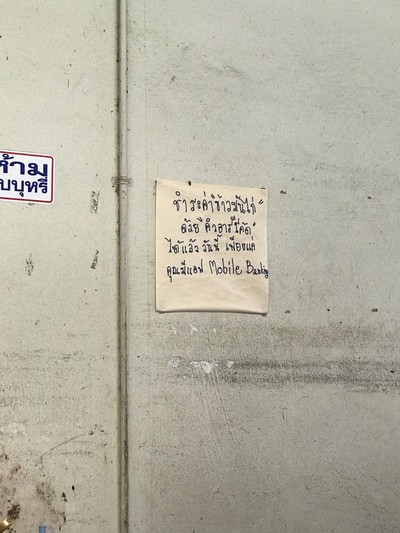 ห้าม
บบุหรี่
ชำระค่าข้าวมันไก่"
ด้วย "คิวอาร์โค้ด"
ได้แล้ว วันนี้ เพียงแค่
คุณมีแอพ Mobile Banking